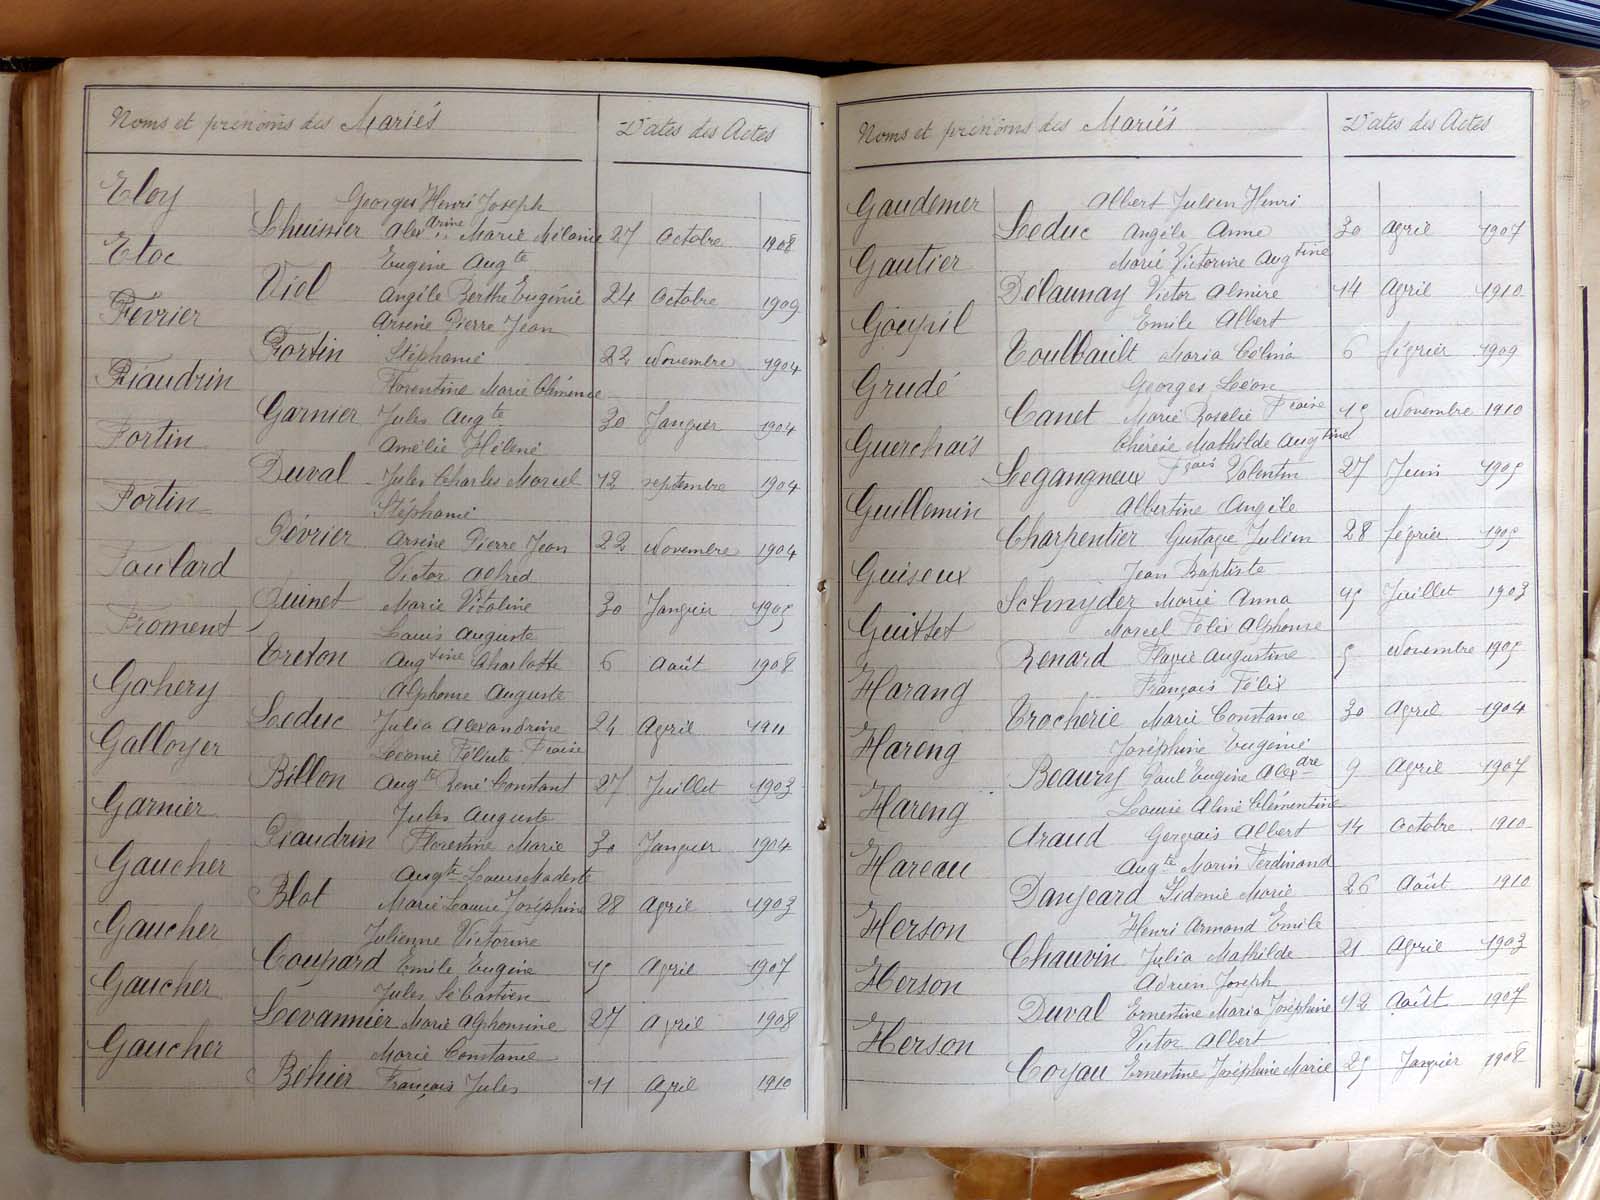 Noms et prénoms des Mariés Dates des Actes
Eloy Georges Henri Joseph
Lhuissier Alex arine Marie Mélanie 27 Octobre 1908
Etoc Eugène Aug te
Viel Angèle Berthe Eugénie 24 Octobre 1909
Février Arsène Pierre Jean
Fortin Stéphanie 22 Novembre 1904
Fiaudrin Florentine Marie Clémence
Garnier Jules Aug te 30 Janvier 1904
Fortin Amélie Hélène
Duval Jules Charles Marcel 12 septembre 1904
Fortin Stéphanie
Février Arsène Pierre Jean 22 Novembre 1904
Foulard Victor Alfred
Quinet Marie Vitaline 30 Janvier 1905
Froment Louis Auguste
Breton Aug tine Charlotte 6 Août 1908
Gahery Alphonse Auguste
Leduc Julia Alexandrine 24 Avril 1911
Galloyer Léonie Félicité Fcaise
Billon Aug te René Constant 27 Juillet 1903
Garnier Jules Auguste
Fiaudrin Florentine Marie 30 Janvier 1904
Gaucher Aug te Louis Modeste
Blot Marie Louise Joséphine 28 Avril 1903
Gaucher Julienne Victorine
Coupard Emile Eugène 15 Avril 1907
Gaucher Jules Sébastien
Levannier Marie Alphonsine 27 Avril 1908
Gaucher Marie Constance
Béhier François Jules 11 Avril 1910
Noms et prénoms des Mariés Dates des Actes
Gaudemer Albert Julien Henri
Leduc Angèle Anna 30 Avril 1907
Gautier Marie Victorine Aug tine
Delaunay Victor Almire 14 Avril 1910
Goupil Emile Albert
Toulbault Maria Célina 6 février 1909
Grudé Georges Léon
Canet Marie Rosalie Fcaise 15 Novembre 1910
Guerchais Thérèse Mathilde Aug tine
Legangneux Fçois Valentin 27 Juin 1905
Guillemin Albertine Angèle
Charpentier Gustave Julien 28 février 1905
Guiseux Jean Baptiste
Schnyder Marie Anna 15 Juillet 1903
Guittet Marcel Félix Alphonse
Renard Flavie Augustine 5 Novembre 1905
Harang François Félix
Trocherie Marie Constance 30 Avril 1904
Hareng Joséphine Eugénie
Beaury Paul Eugène Alex dre 9 Avril 1907
Hareng Louise Aline Clémentine
Araud Gervais Albert 14 Octobre 1910
Hareau Aug te Marin Ferdinand
Daujeard Sidonie Marie 26 Août 1910
Herson Henri Armand Emile
Chauvin Julia Mathilde 21 Avril 1903
Herson Adrien Joseph
Duval Ernestine Maria Joséphine 12 Août 1907
Herson Victor Albert
Coyau Ernestine Joséphine Marie 25 Janvier 1908